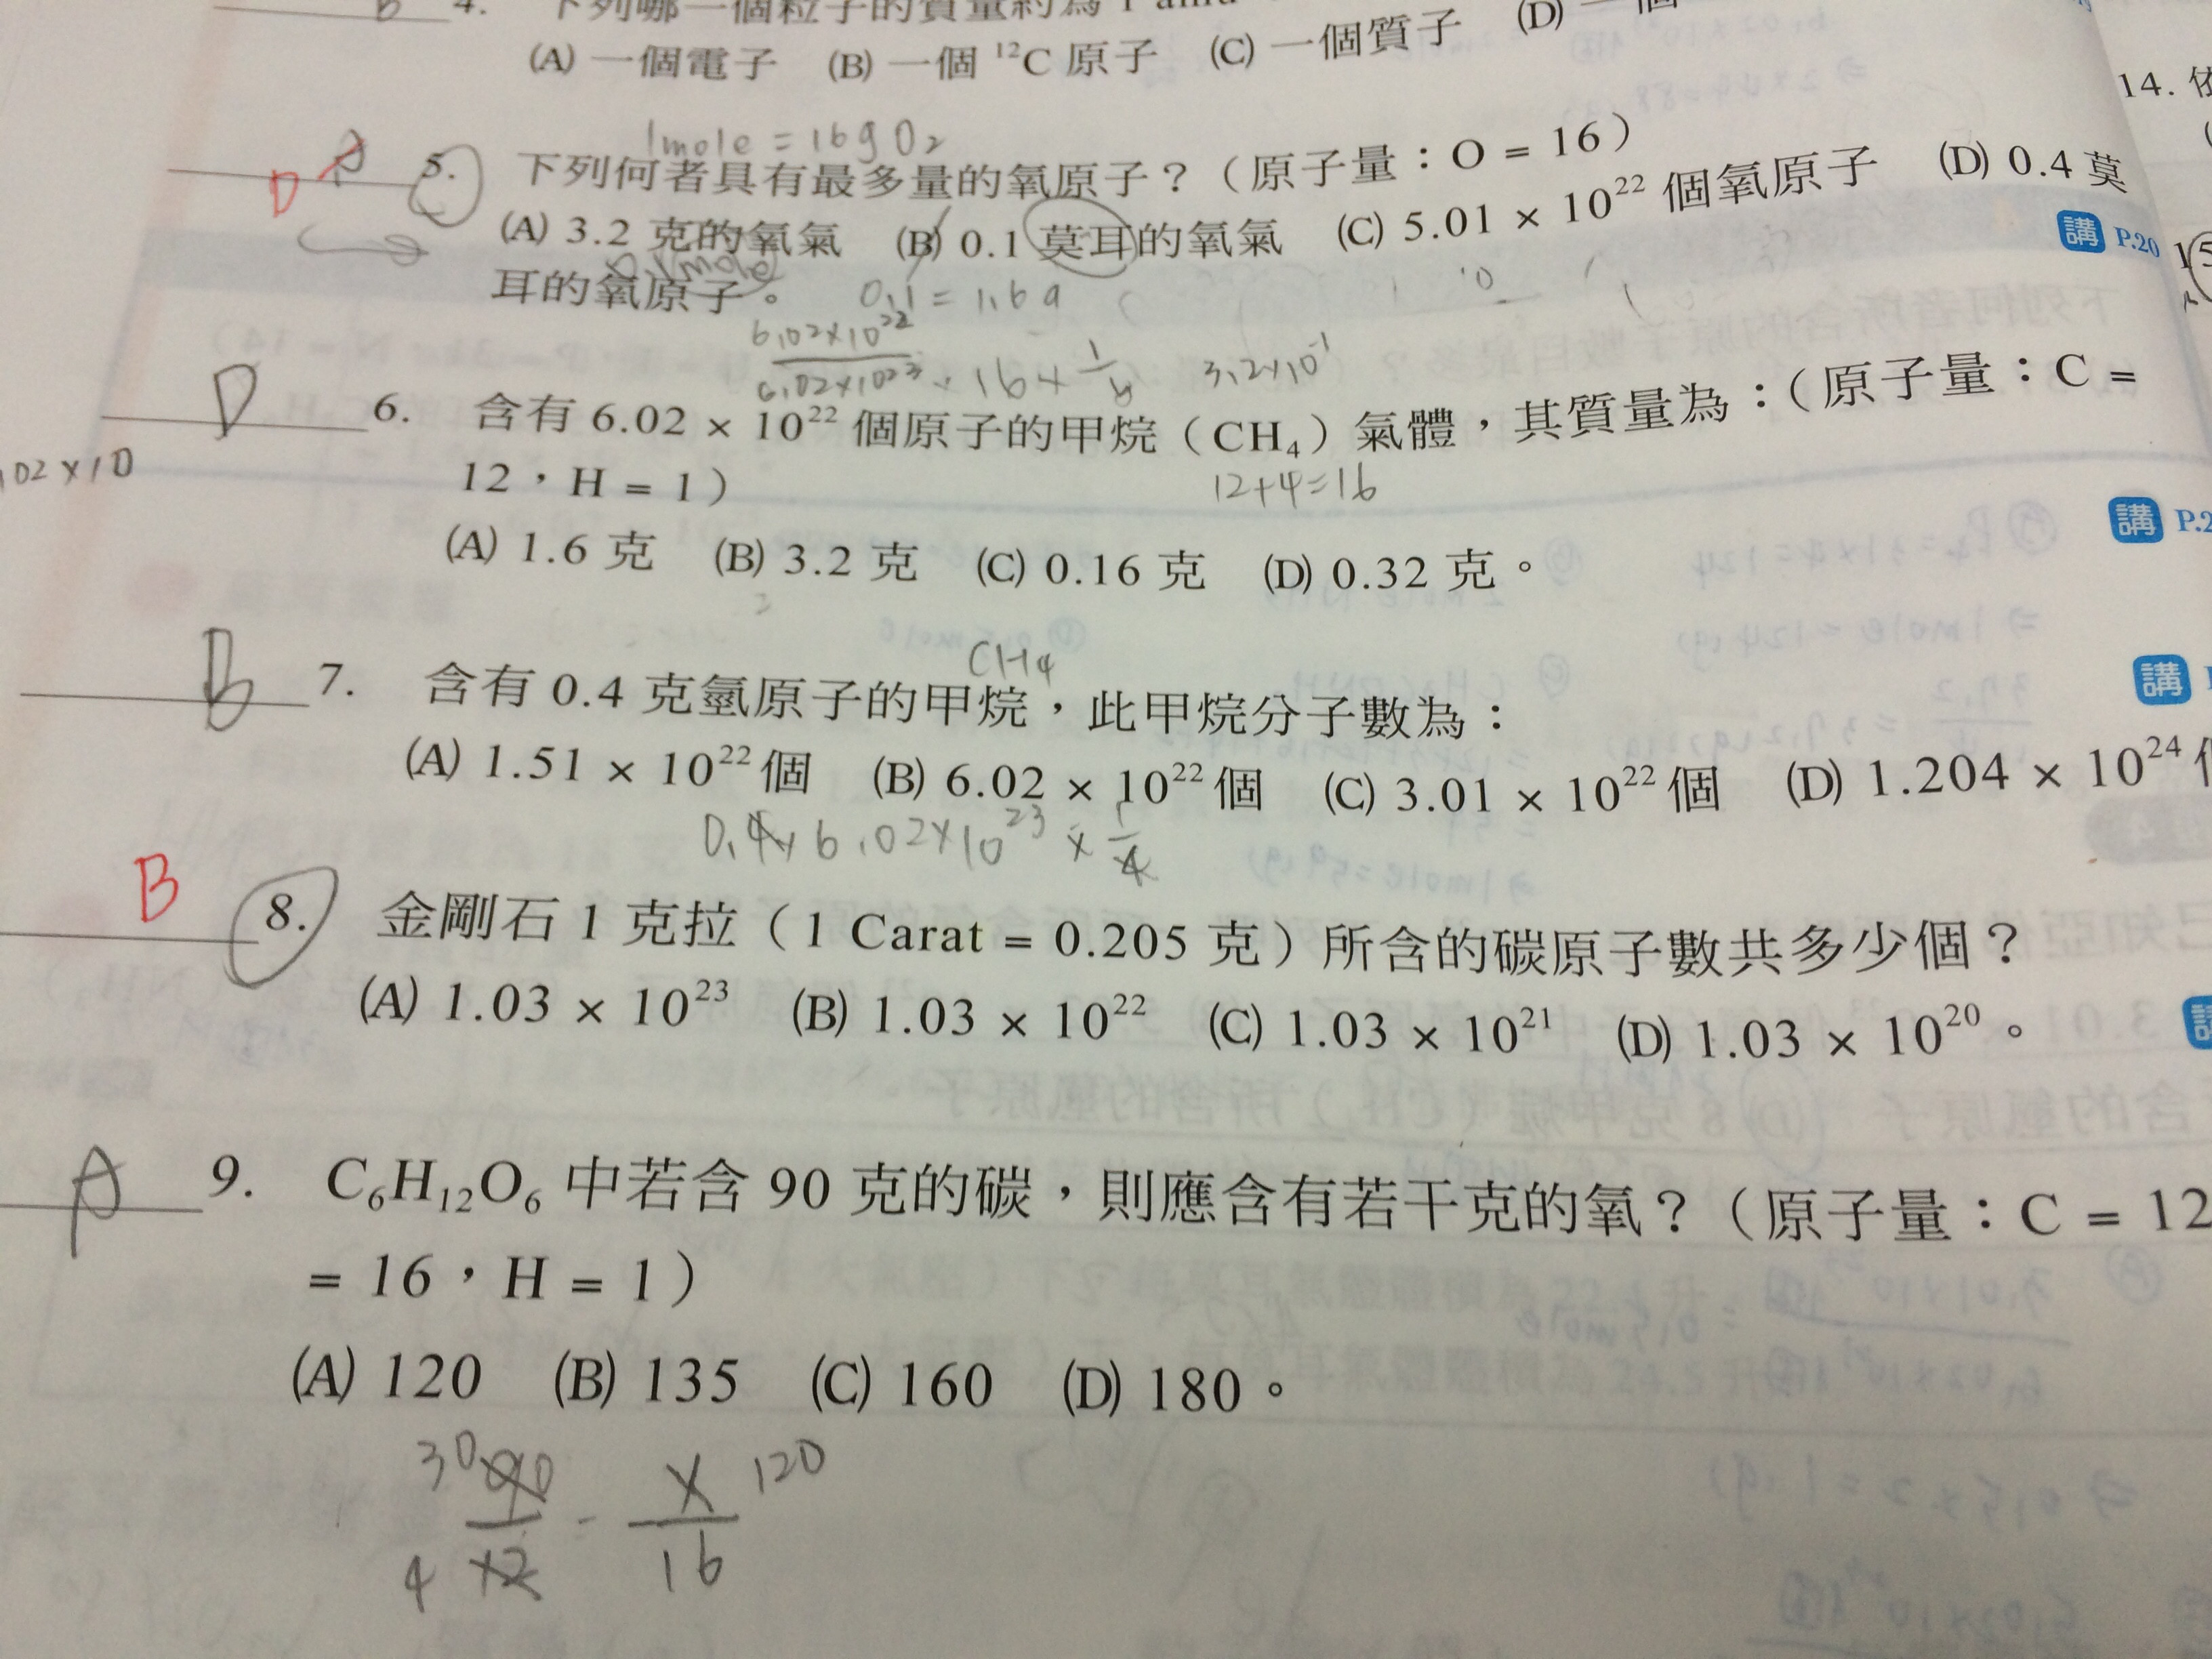 B 4. 下列哪一個粒子的質量約為 1 amu
(A) 一個電子 (B) 一個 ¹²C 原子 (C) 一個質子 (D) 一個
14. 依
1mole = 16g O₂
D A 5. 下列何者具有最多量的氧原子？（原子量：O = 16）
(A) 3.2 克的氧氣 (B) 0.1 莫耳的氧氣 (C) 5.01 × 10²² 個氧原子 (D) 0.4 莫
講 P.20
15
耳的氧原子。
0.1 = 1.6g
6.02×10²²
6.02×10²³ · 16 × 1/5 3.2×10⁻¹
D 6. 含有 6.02 × 10²² 個原子的甲烷（CH₄）氣體，其質量為：（原子量：C =
02×10
12，H = 1）
12+4=16
(A) 1.6 克 (B) 3.2 克 (C) 0.16 克 (D) 0.32 克。
講 P.2
CH₄
B 7. 含有 0.4 克氫原子的甲烷，此甲烷分子數為：
講
(A) 1.51 × 10²² 個 (B) 6.02 × 10²² 個 (C) 3.01 × 10²² 個 (D) 1.204 × 10²⁴
0.4×6.02×10²³ × 1/4
B 8. 金剛石 1 克拉（1 Carat = 0.205 克）所含的碳原子數共多少個？
(A) 1.03 × 10²³ (B) 1.03 × 10²² (C) 1.03 × 10²¹ (D) 1.03 × 10²⁰。
A 9. C₆H₁₂O₆ 中若含 90 克的碳，則應含有若干克的氧？（原子量：C = 12
= 16，H = 1）
(A) 120 (B) 135 (C) 160 (D) 180。
30 90 X 120
4 12 16